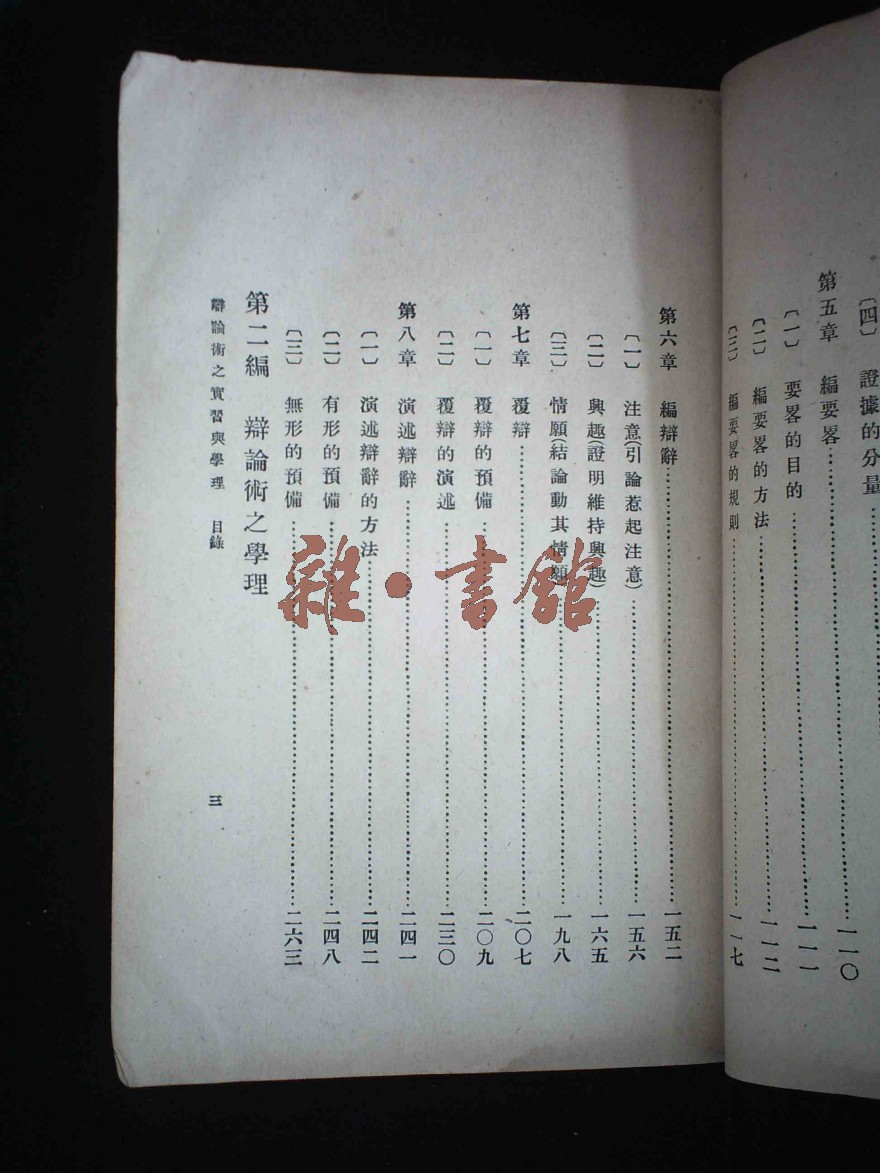 〔四〕 證據的分量⋯⋯一一〇
第五章 編要畧⋯⋯
〔一〕 要畧的目的⋯⋯一一一
〔二〕 編要畧的方法⋯⋯一一二
〔三〕 編要畧的規則⋯⋯一一七
第六章 編辯辭⋯⋯一五二
〔一〕 注意(引論惹起注意)⋯⋯一五六
〔二〕 興趣(證明維持興趣)⋯⋯一六五
〔三〕 情願(結論動其情願)⋯⋯一九八
第七章 覆辯⋯⋯二〇七
〔一〕 覆辯的預備⋯⋯二〇九
〔二〕 覆辯的演述⋯⋯二三〇
第八章 演述辯辭⋯⋯二四一
〔一〕 演述辯辭的方法⋯⋯二四二
〔二〕 有形的預備⋯⋯二四八
〔三〕 無形的預備⋯⋯二六三
第二編 辯論術之學理
辯論術之實習與學理 目錄 三
雜·書館